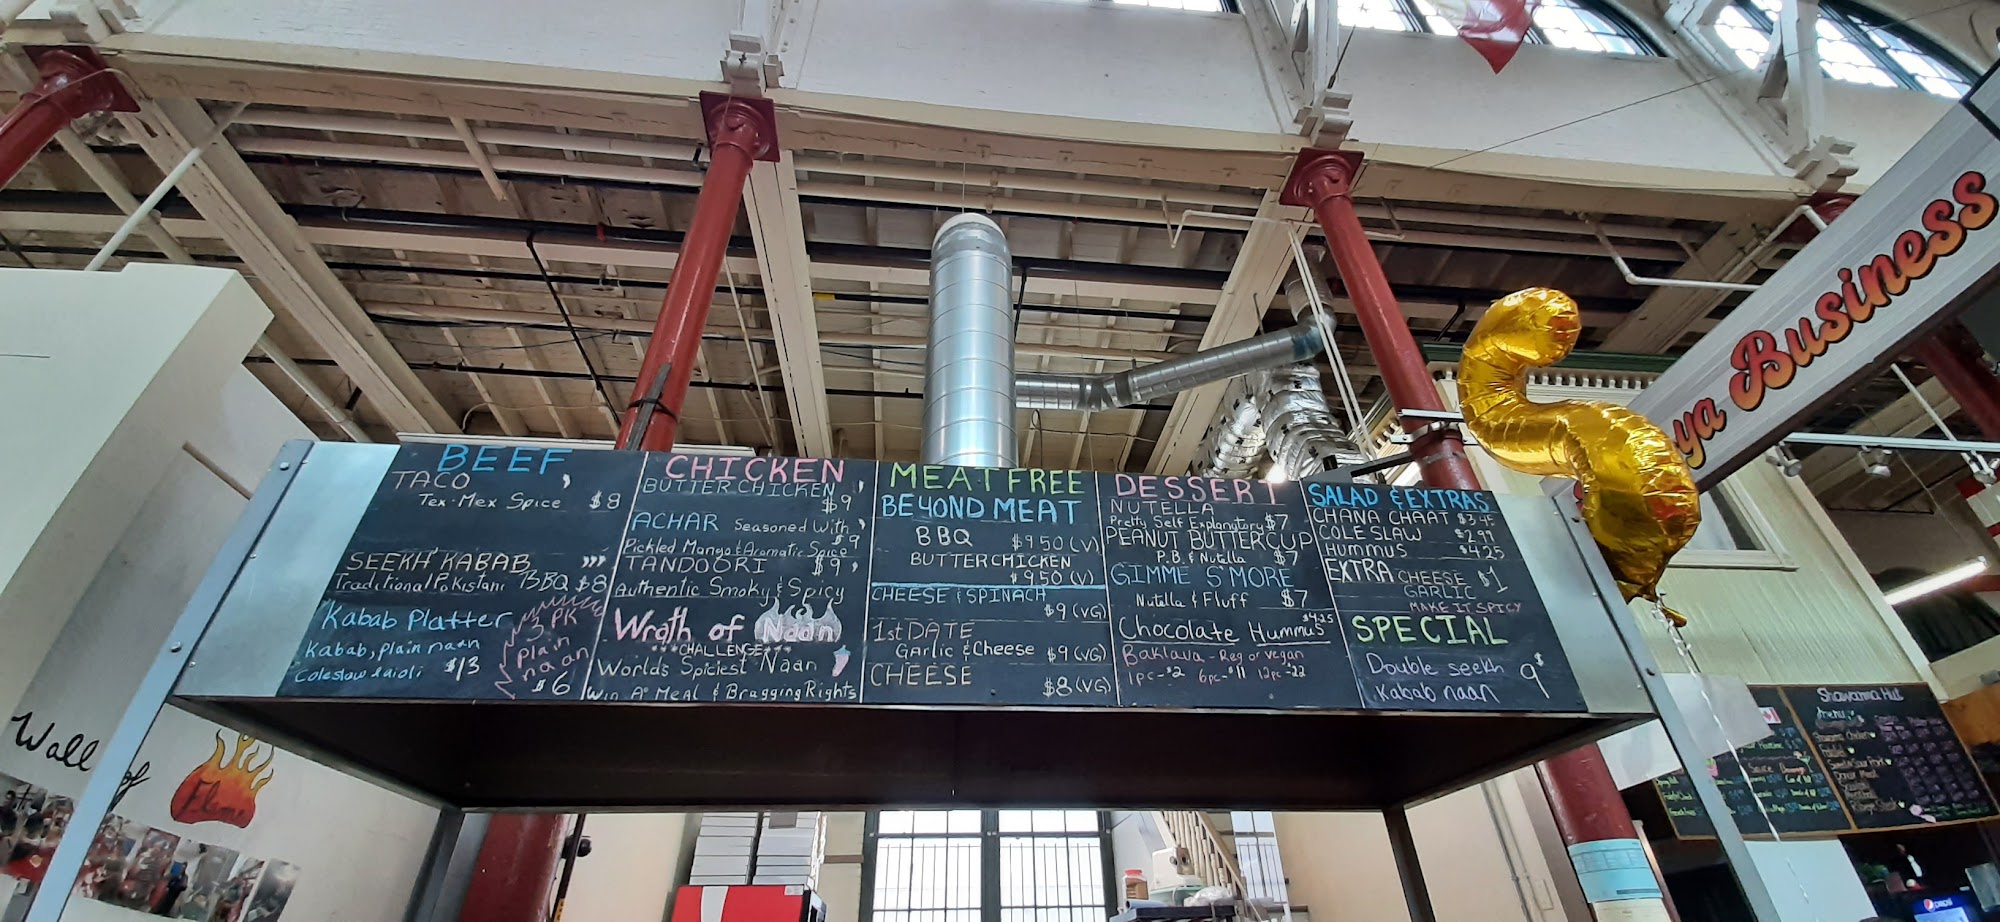 BEEF
TACO
Tex-Mex Spice $8
SEEKH KABAB
Traditional Pakistani BBQ $8
Kabab Platter
Kabab, plain naan
Coleslaw & aioli $13
3 PK
plain
naan
$6
CHICKEN
BUTTER CHICKEN
$9
ACHAR Seasoned With
$9
Pickled Mango & Aromatic Spice
TANDOORI $9
Authentic Smoky & Spicy
Wrath of Naan
CHALLENGE
Worlds Spiciest Naan
Win A Meal & Bragging Rights
MEAT FREE
BEYOND MEAT
BBQ $9.50 (V)
BUTTER CHICKEN
$9.50 (V)
CHEESE & SPINACH
$9 (VG)
1st DATE
Garlic & Cheese $9 (VG)
CHEESE
$8 (VG)
DESSERT
NUTELLA
Pretty Self Explanatory $7
PEANUT BUTTER CUP
P.B. & Nutella $7
GIMME S'MORE
Nutella & Fluff $7
$4.25
Chocolate Hummus
Baklava - Reg or Vegan
1pc-$2 6pc-$11 12pc-22
SALAD & EXTRAS
CHANA CHAAT $3.45
COLE SLAW $2.99
HUMMUS $4.25
EXTRA CHEESE $1
GARLIC
MAKE IT SPICY
SPECIAL
Double seekh 9$
Kabab naan
ya Business
Wall of
Flame
Shawarma Hut
menu
pepsi